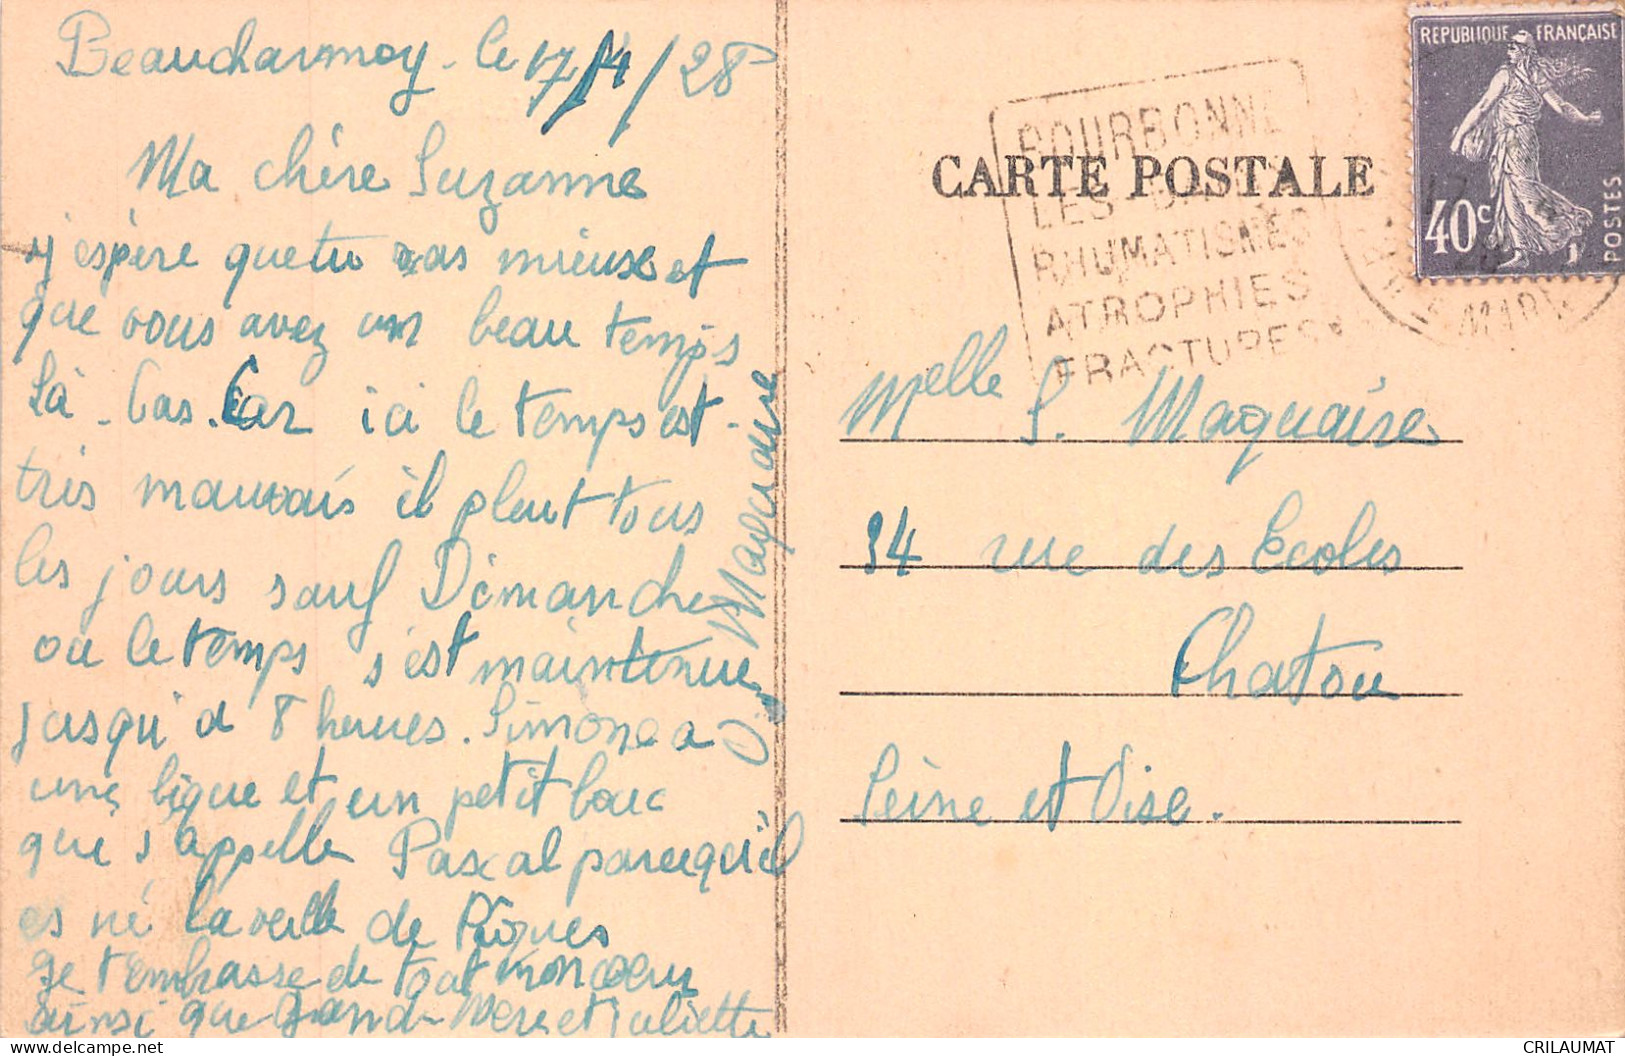 Beaucharmoy - le 17/4/28
Ma chère Suzanne
j'espère que tu vas mieux et
que vous avez un beau temps
là-bas. Car ici le temps est
très mauvais il pleut tous
les jours sauf Dimanche
ou le temps s'est maintenue
jusqu'a 8 heures. Simone a
une bique et un petit bouc
qui s'appelle Pascal parcequ'il
es né la veille de Pâques
Je t'embrasse de tout mon cœur
ainsi que Grand-Mère et Juliette
Maquaire
CARTE POSTALE
BOURBONNE
LES BAINS
RHUMATISMES
ATROPHIES
FRACTURES
REPUBLIQUE FRANÇAISE
40c
POSTES
Melle S. Maquaire
94 rue des Ecoles
Chatou
Seine et Oise.
delcampe.net
CRILAUMAT